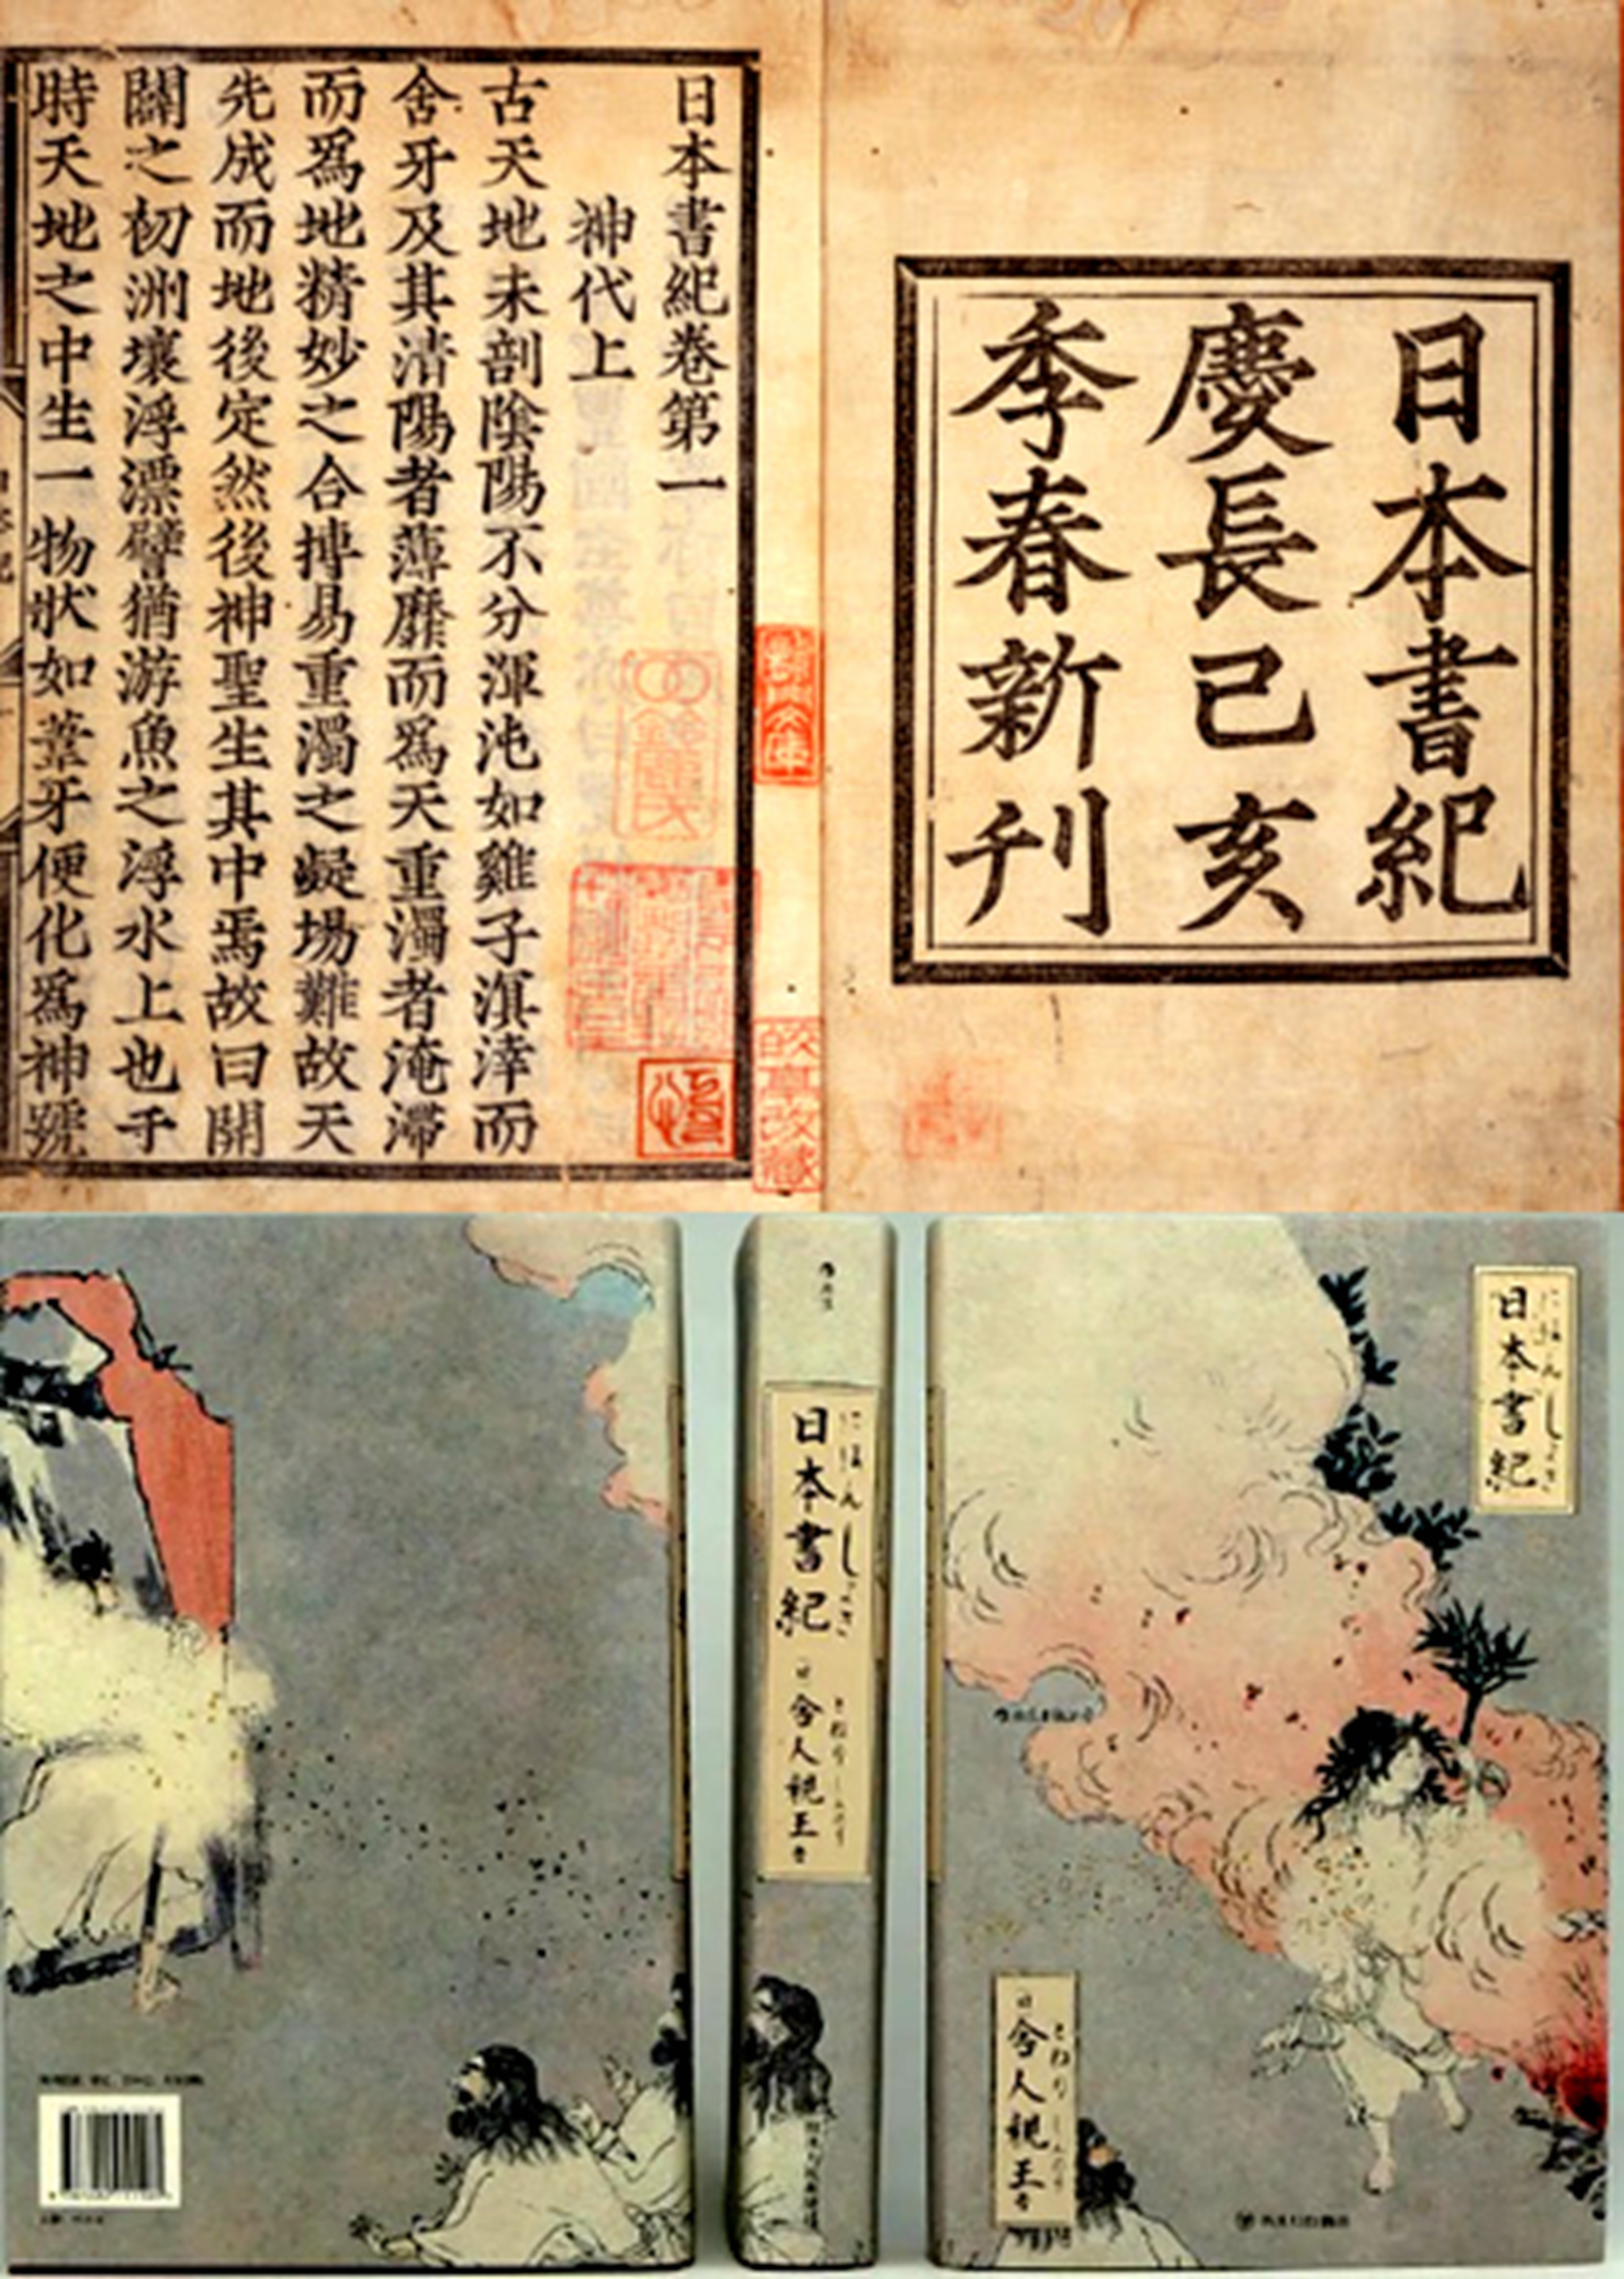 日本書紀
慶長己亥
季春新刊
日本書紀卷第一
神代上
古天地未剖陰陽不分渾沌如雞子溟涬而
含牙及其淸陽者薄靡而爲天重濁者淹滯
而爲地精妙之合摶易重濁之凝場難故天
先成而地後定然後神聖生其中焉故曰開
闢之初洲壤浮漂譬猶游魚之浮水上也于
時天地之中生一物狀如葦牙便化爲神號
日本書紀
にほんしょき
舍人親王
日本書紀
にほんしょき
舍人親王